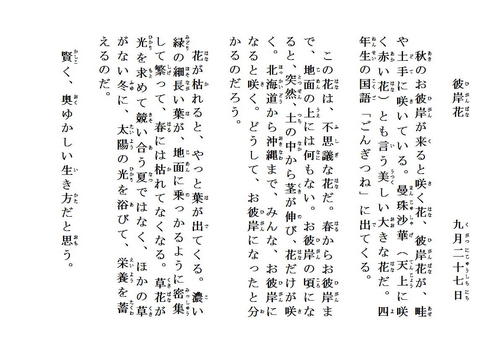 彼岸花　九月二十七日
秋のお彼岸が来ると咲く花、彼岸花が、畦
や土手に咲いている。曼珠沙華（天上に咲
く赤い花）とも言う美しい大きな花だ。四
年生の国語「ごんぎつね」に出てくる。
この花は、不思議な花だ。春からお彼岸ま
で、地面の上には何もない。お彼岸の頃にな
ると、突然、土の中から茎が伸び、花だけが咲
く。北海道から沖縄まで、みんな、お彼岸に
なると咲く。どうして、お彼岸になったと分
かるのだろう。
花が枯れると、やっと葉が出てくる。濃い
緑の細長い葉が、地面に乗っかるように密集
して繁って、春には枯れてなくなる。草花が
光を求めて競い合う夏ではなく、ほかの草
がない冬に、太陽の光を浴びて、栄養を蓄
えるのだ。
賢く、奥ゆかしい生き方だと思う。